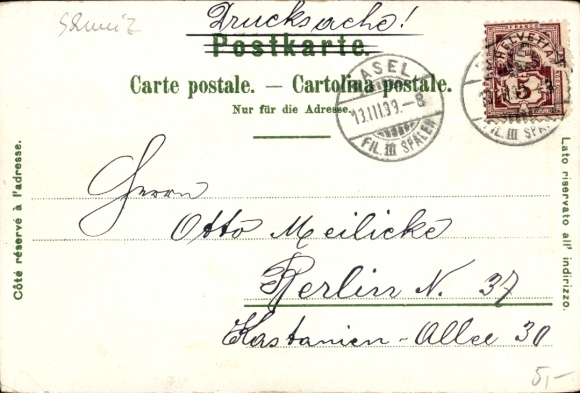 Schweiz
Drucksache!
Postkarte.
Carte postale. — Cartolina postale.
Nur für die Adresse.
BASEL
13.III.99.–8
FIL. III SPALEN
HELVETIA
5
FIL. III SPALEN
Côté réservé à l'adresse.
Lato riservato all' indirizzo.
Herrn
Otto Meilicke
Berlin N. 37
Kastanien-Allee 30
5,-